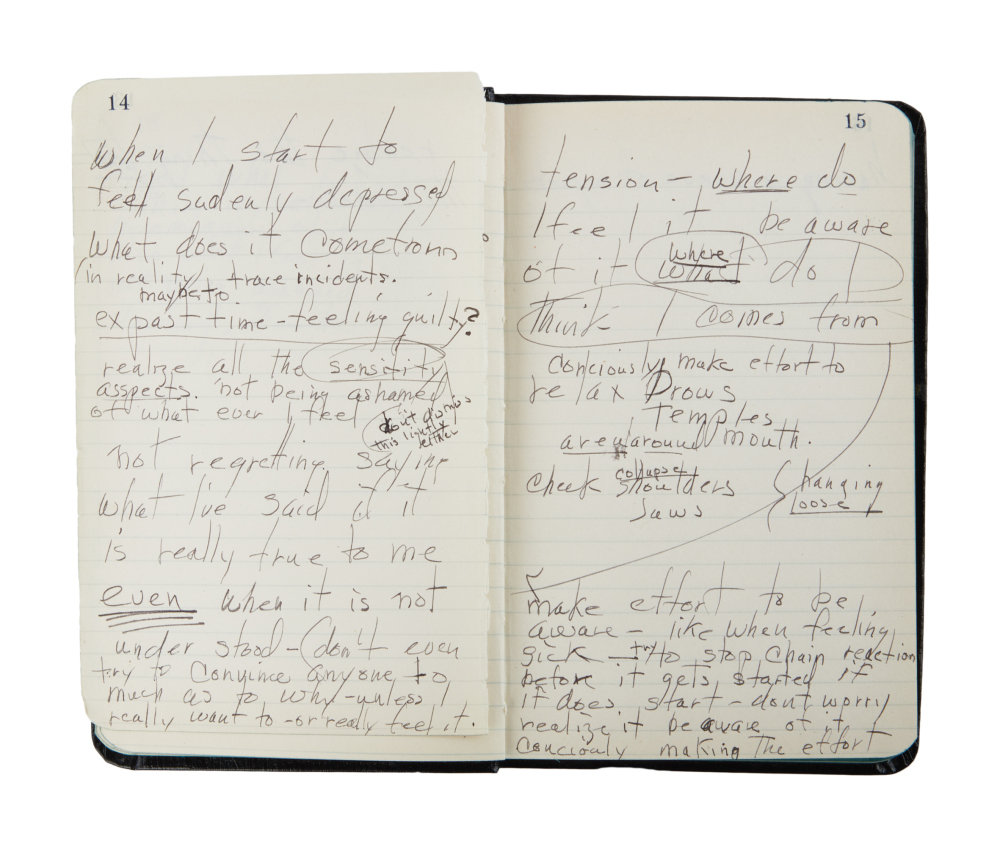 14
when I start to
feel sudenly depressed
what does it come from
(in reality) trace incidents.
maybe to.
ex past time - feeling guilty?
realize all the sensitity
asspects. not being ashamed
of what ever I feel
don't dismiss
this lightly
either
not regreting saying
what I've said if it
is really true to me
even when it is not
under stood - (don't even
try to convince anyone to
much as to why - unless I
really want to - or really feel it.
15
tension - where do
I feel it be aware
where
of it what do I
think I comes from
conciously make effort to
relax Brows
Temples
area around mouth.
collapse
check shoulders
Jaws
hanging
loose
make effort to be
aware - like when feeling
sick - try to stop chain reaction
before it gets started if
it does. start - dont worry
realize it be aware of it
conciously making the effort